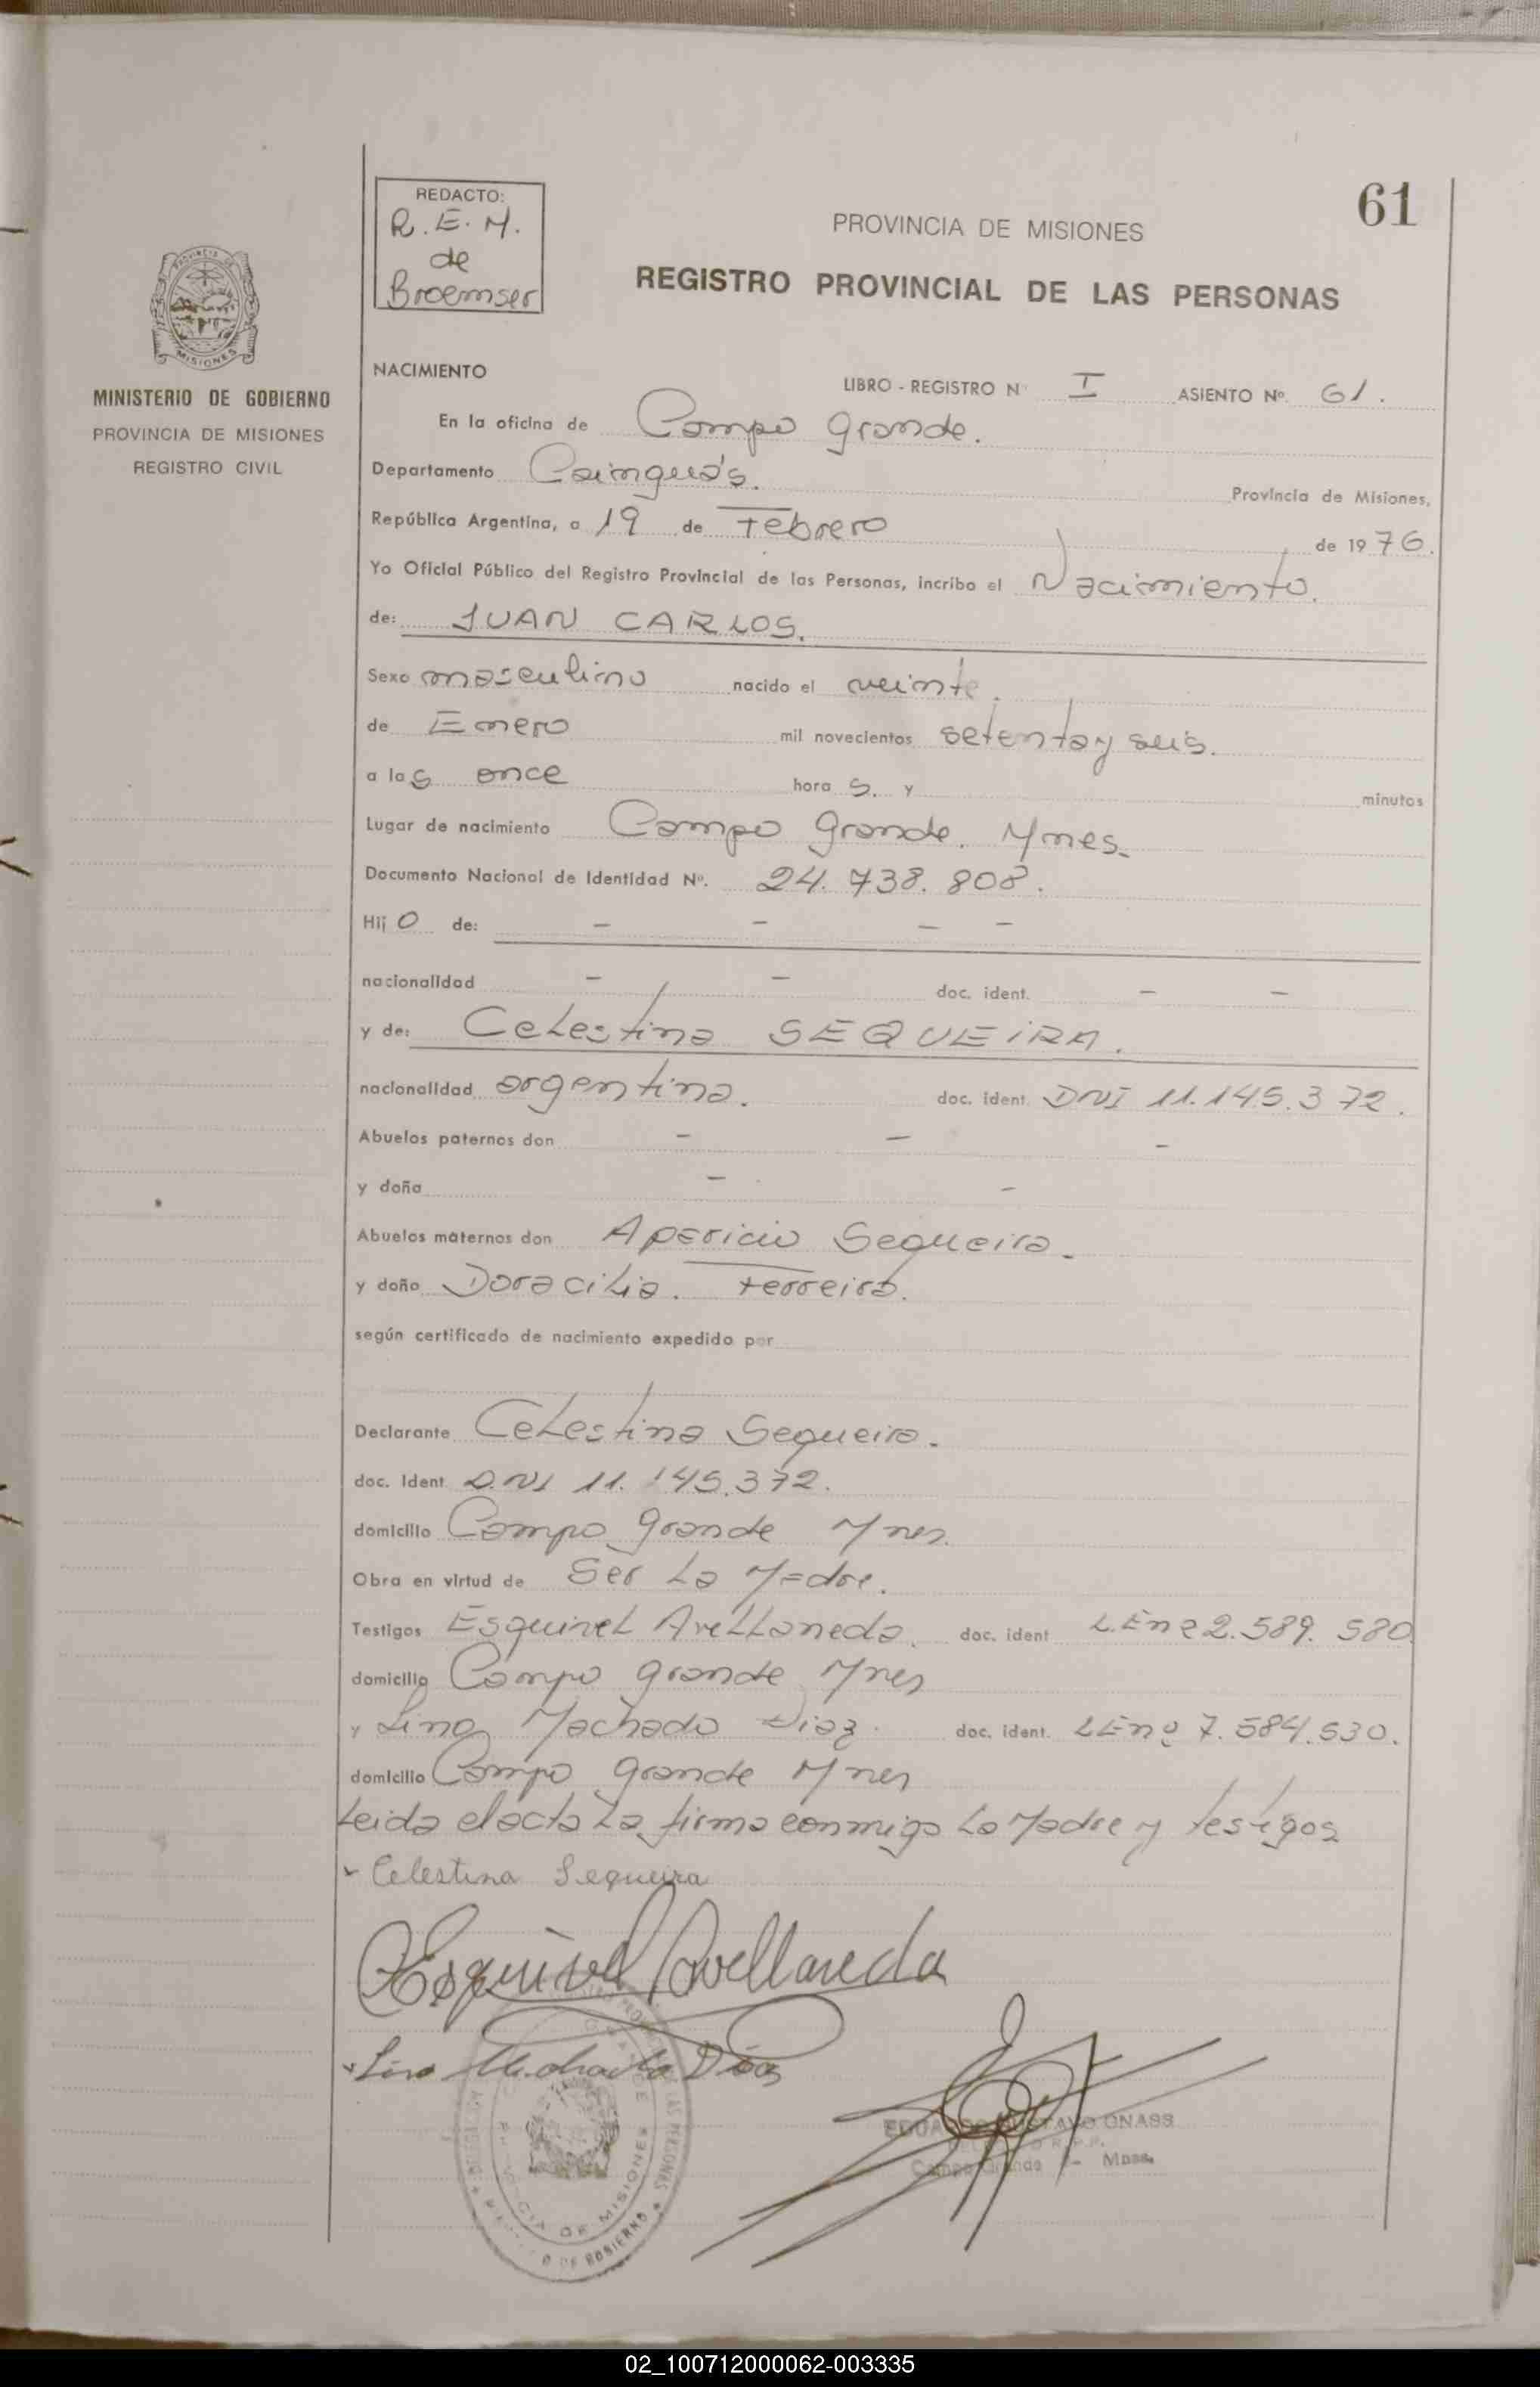 61
REDACTO:
R.E.M.
de
Broemser
PROVINCIA DE MISIONES
REGISTRO PROVINCIAL DE LAS PERSONAS
MISIONES
MINISTERIO DE GOBIERNO
PROVINCIA DE MISIONES
REGISTRO CIVIL
NACIMIENTO
LIBRO - REGISTRO Nº I ASIENTO Nº. 61.
En la oficina de Campo Grande.
Departamento Cainguás. Provincia de Misiones,
República Argentina, a 19 de Febrero de 1976.
Yo Oficial Público del Registro Provincial de las Personas, incribo el Nacimiento.
de: JUAN CARLOS.
Sexo masculino nacido el veinte.
de Enero mil novecientos setenta y seis.
a las once horas. y minutos
Lugar de nacimiento Campo Grande. Mnes.
Documento Nacional de Identidad Nº. 24.738.808.
Hijo de: - - - -
nacionalidad - - doc. ident. - -
y de: Celestina SEQUEIRA.
nacionalidad argentina. doc. ident. DNI 11.145.372.
Abuelos paternos don - - -
y doña - -
Abuelos maternos don Aparicio Sequeira.
y doña Doracilia. Ferreira.
según certificado de nacimiento expedido por
Declarante Celestina Sequeira.
doc. Ident. D.NI 11.145.372.
domicilio Campo Grande Mnes.
Obra en virtud de Ser La Madre.
Testigos Esquivel Avellaneda. doc. ident L.Enº 2.589.580
domicilio Campo Grande Mnes
y Lino Machado Diaz. doc. ident. LEnº 7.584.530.
domicilio Campo Grande Mnes
Leida el acta La firma conmigo La Madre y testigos
Celestina Sequeira
Esquivel Avellaneda
Lino Machado Diaz
EDUARDO GUSTAVO ONASS
Campo Grande - Mnes.
PROVINCIA DE MISIONES
02_100712000062-003335